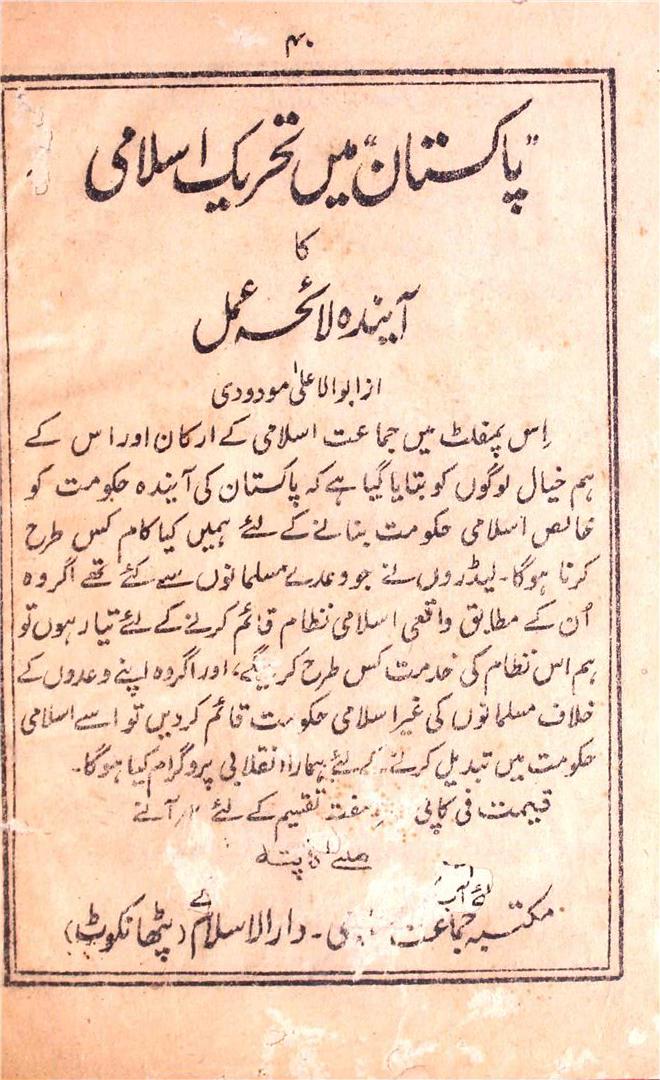 ۴۰
"پاکستان" میں تحریک اسلامی
کا
آیندہ لائحہ عمل
از ابوالاعلیٰ مودودی
اِس پمفلٹ میں جماعت اسلامی کے ارکان اور اس کے
ہم خیال لوگوں کو بتایا گیا ہے کہ پاکستان کی آیندہ حکومت کو
خالص اسلامی حکومت بنانے کے لئے ہمیں کیا کام کس طرح
کرنا ہوگا۔ لیڈروں نے جو وعدے مسلمانوں سے کئے تھے اگر وہ
اُن کے مطابق واقعی اسلامی نظام قائم کرنے کے لئے تیار ہوں تو
ہم اس نظام کی خدمت کس طرح کرینگے، اور اگر وہ اپنے وعدوں کے
خلاف مسلمانوں کی غیر اسلامی حکومت قائم کردیں تو اسے اسلامی
حکومت میں تبدیل کرنے کے لئے ہمارا انقلابی پروگرام کیا ہوگا۔
قیمت فی کاپی مفت تقسیم کے لئے ۲؍ آنے
ملنے کا پتہ
مکتبہ جماعت ۔ دارالاسلام (پٹھانکوٹ)